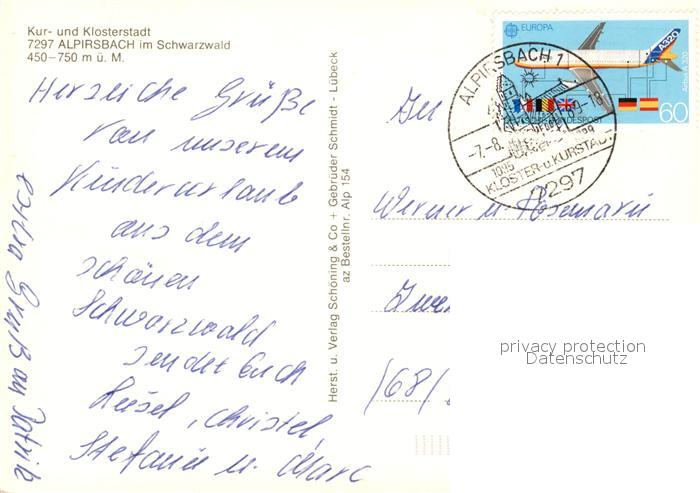 Kur- und Klosterstadt
7297 ALPIRSBACH im Schwarzwald
450–750 m ü. M.
Herzliche Grüße
von unserem
Kinderurlaub
aus dem
schönen
Schwarzwald
sendet Euch
Christel,
Stefanie u. Marc
extra Gruß an Patrik
Herst. u. Verlag Schöning & Co + Gebrüder Schmidt - Lübeck
az Bestellnr. Alp 154
EUROPA
A320
Airbus A320
60
DEUTSCHE BUNDESPOST
ALPIRSBACH 1
-7.-8.
1095
KLOSTER-u.KURSTADT
7297
Werner u. Rosemarie
privacy protection
Datenschutz